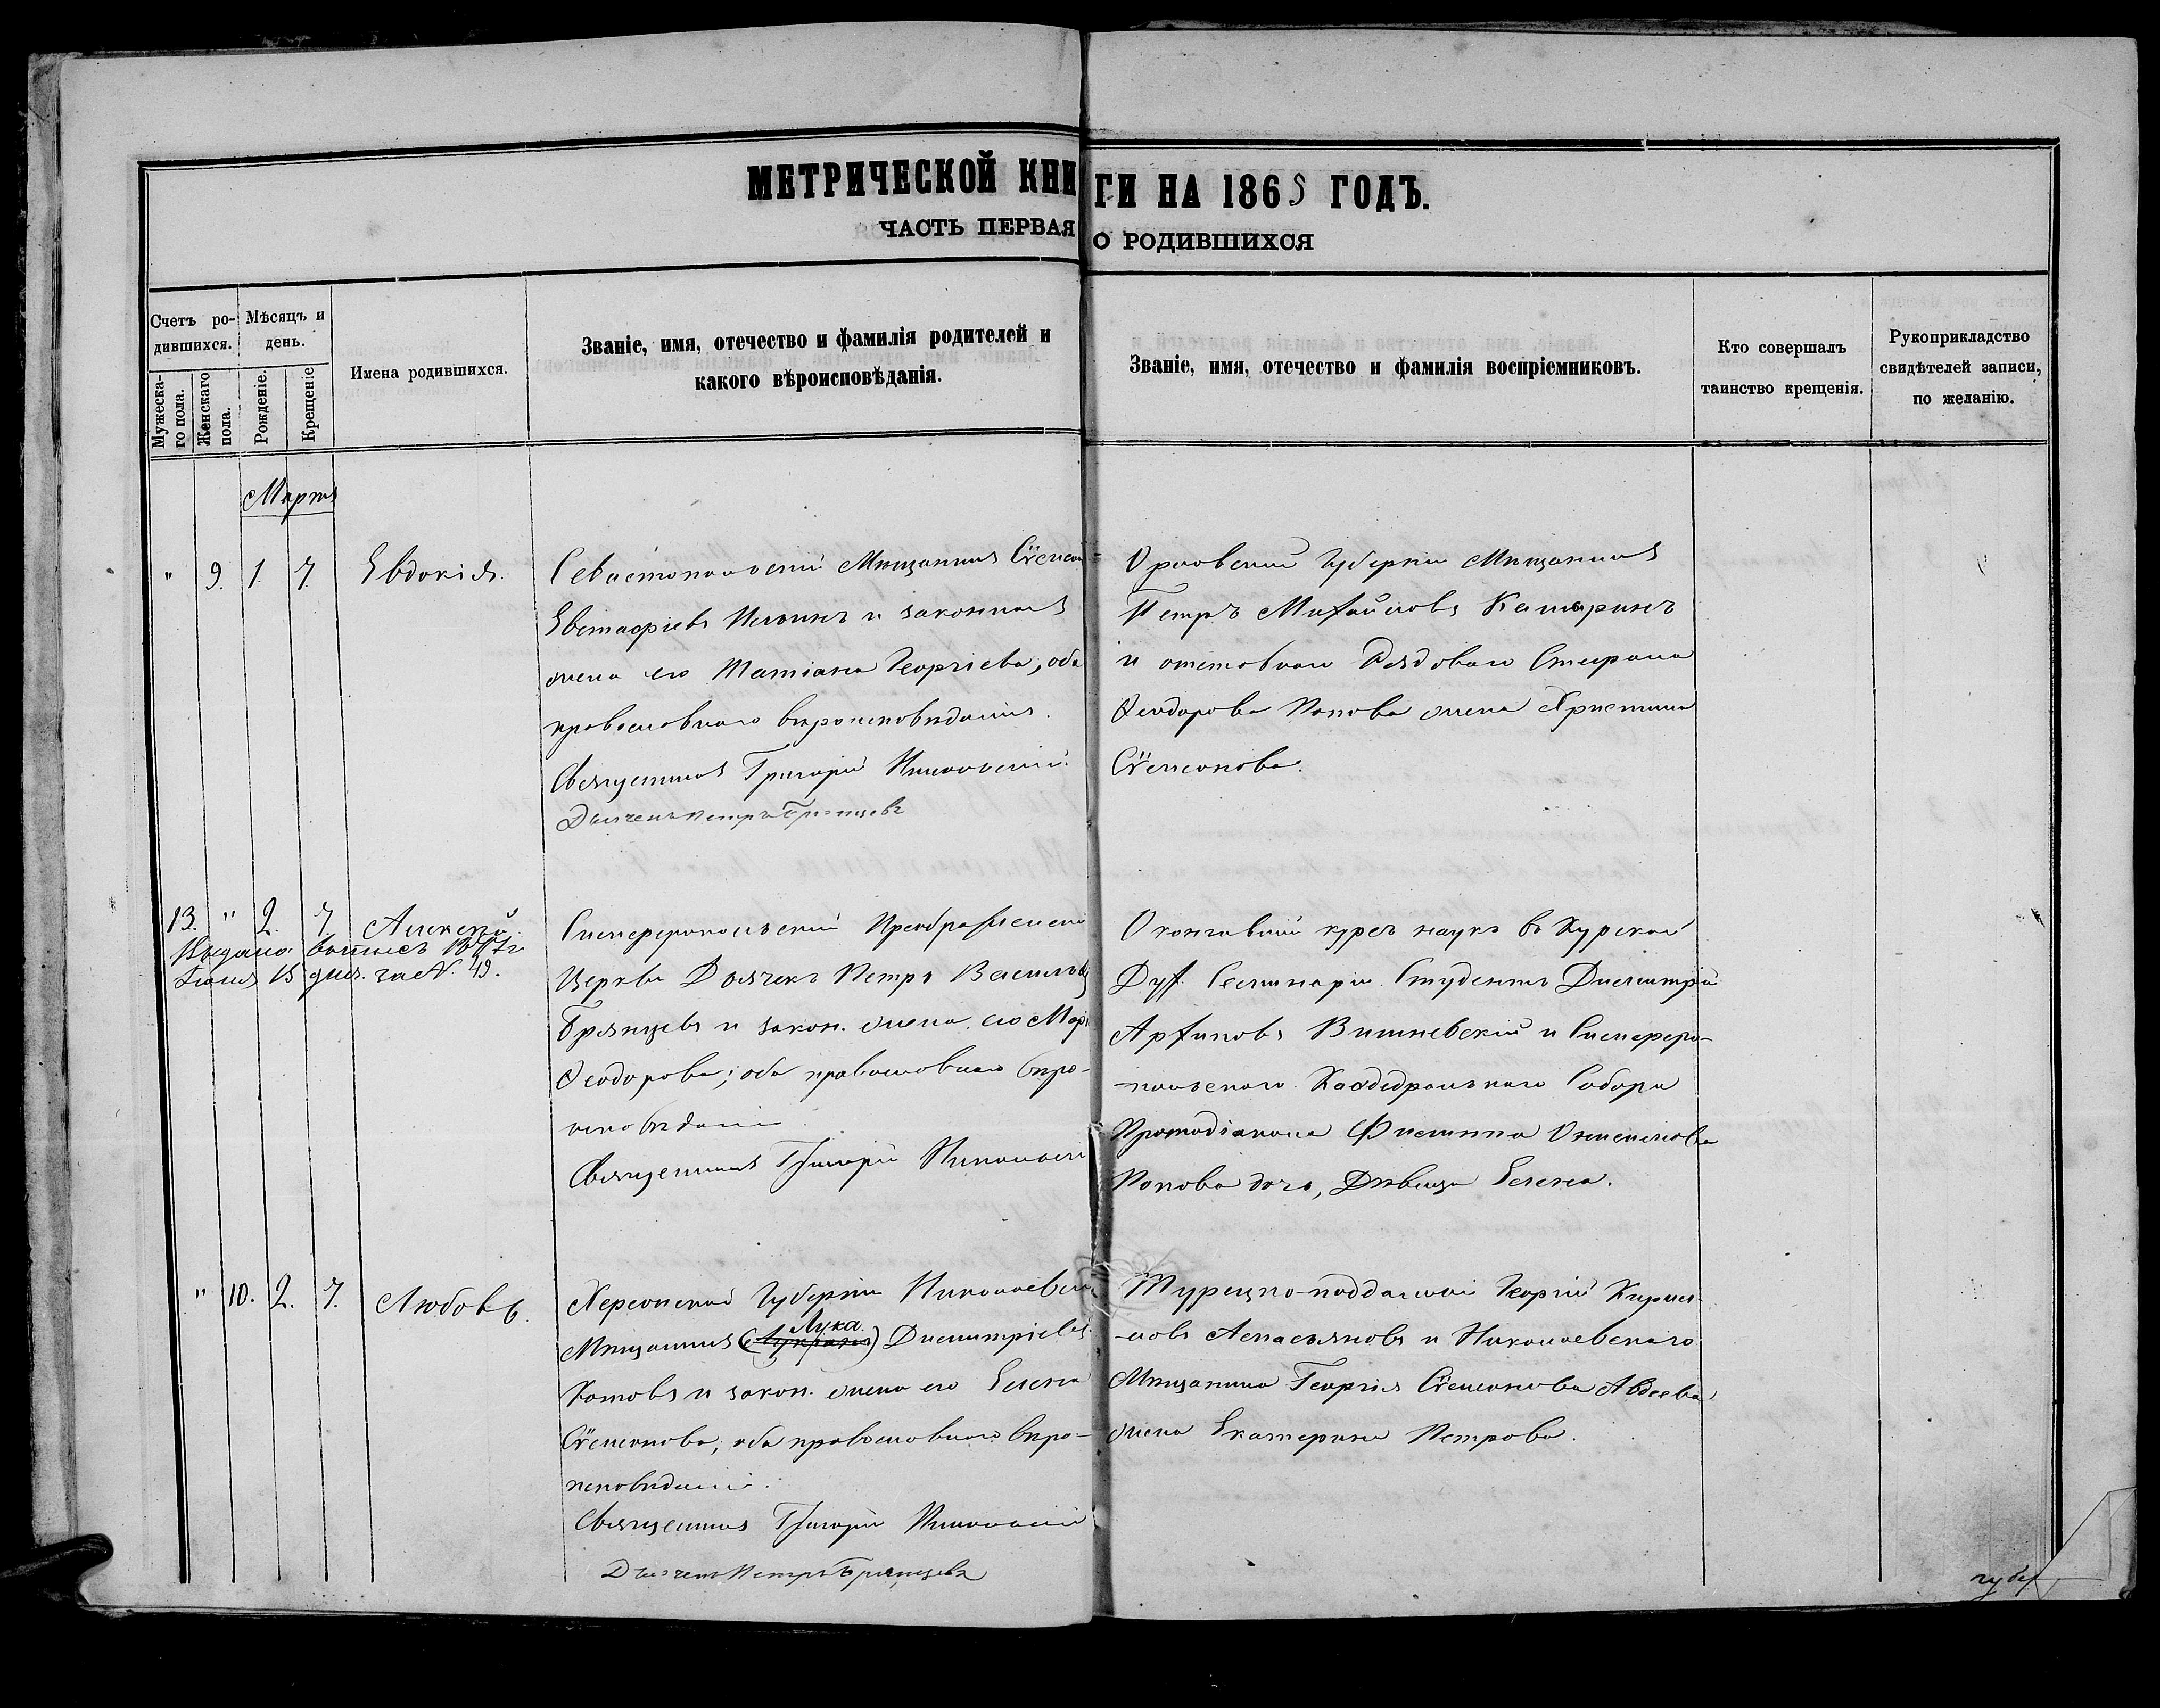 МЕТРИЧЕСКОЙ КНИГИ НА 1865 ГОДЪ.
ЧАСТЬ ПЕРВАЯ О РОДИВШИХСЯ
Счетъ ро-
дившихся.
Мѣсяцъ и
день.
Мужеска-
го пола.
Женскаго
пола.
Рожденіе.
Крещеніе
Имена родившихся.
Званіе, имя, отечество и фамилія родителей и
какого вѣроисповѣданія.
Званіе, имя, отечество и фамилія воспріемниковъ.
Кто совершалъ
таинство крещенія.
Рукоприкладство
свидѣтелей записи,
по желанію.
Мартъ
" 9. 1. 7. Евдокія.
Севастопольскій Мѣщанинъ Сѵмеонъ
Евстафіевъ Ильинъ и законная
жена его Татіана Георгіева; оба
православнаго вѣроисповѣданія.
Священникъ Григорій Никольскій.
Дьячекъ Петръ Брянцевъ
Орловской Губерніи Мѣщанинъ
Петръ Михайловъ
и отставнаго Рядоваго Стефана
Ѳеодорова Попова жена Христина
Сѵмеонова.
13. " 2. 7. Алексѣй.
Выдана выпись
Іюня 15 дня. за №. 49.
Симферопольской Преображенской
Церкви Дьячекъ Петръ Васильевъ
Брянцевъ и закон. жена его Марія
Ѳеодорова; оба православнаго вѣро-
исповѣданія.
Священникъ Григорій Никольскій
Окончившій курсъ наукъ въ Курской
Дух. Семинаріи Студентъ Димитрій
Архиповъ Вишневскій и Симферо-
-польскаго Каѳедральнаго Собора
Протодіакона Филиппа
Попова дочь, Дѣвица Елена.
" 10. 2. 7. Любовь.
Херсонской Губерніи Николаевскій
Лука
Мѣщанинъ Димитріевъ
Котовъ и закон. жена его Елена
Сѵмеонова; оба православнаго вѣро-
исповѣданія.
Священникъ Григорій Никольскій
Дьячекъ Петръ Брянцевъ
Турецко-подданный Георгій Кирил-
-ловъ Аспасьяновъ и Николаевскаго
Мѣщанина Георгія Сѵмеонова Авдеева
жена Екатерина Петрова.
губер